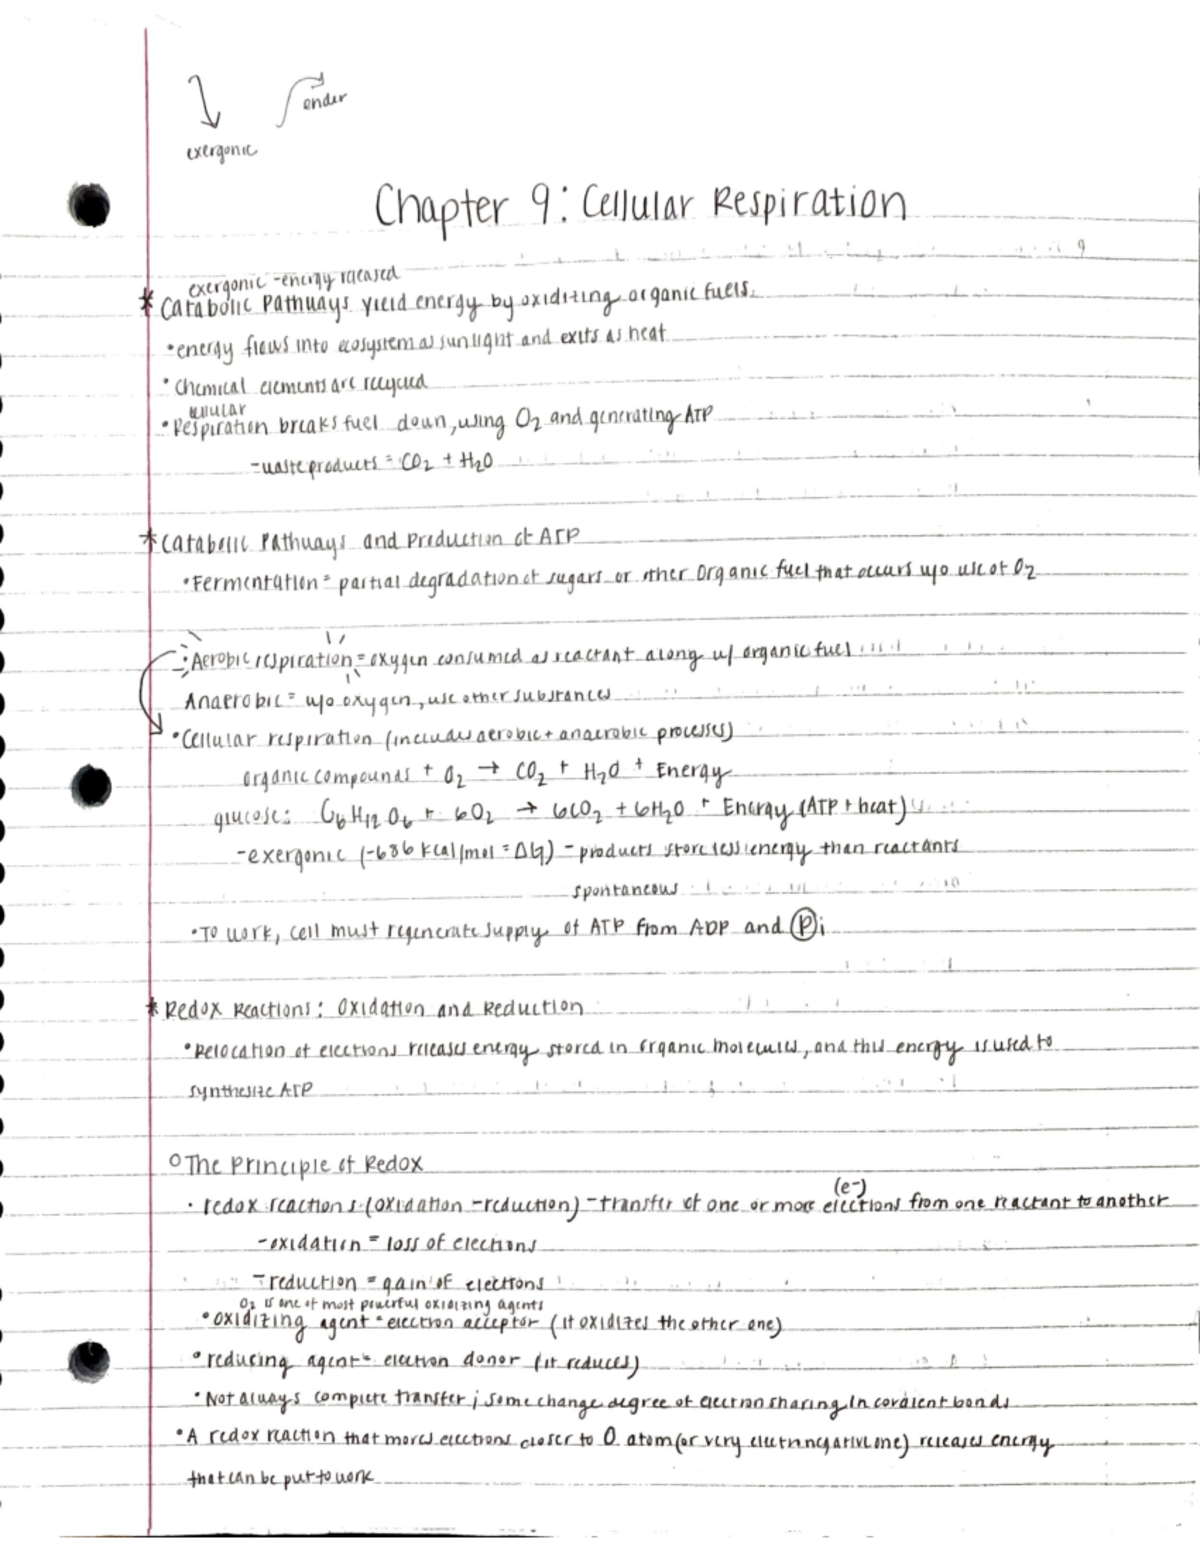 ender
exergonic
Chapter 9: Cellular Respiration
exergonic -energy released
* Catabolic Pathways yield energy by oxidizing organic fuels.
• energy flows into ecosystem as sunlight and exits as heat
• Chemical elements are recycled
cellular
• Respiration breaks fuel down, using O₂ and generating ATP
- waste products = CO₂ + H₂O
* Catabolic Pathways and Production of ATP
• Fermentation = partial degradation of sugars or other organic fuel that occurs w/o use of O₂
• Aerobic respiration = oxygen consumed as reactant along w/ organic fuel
Anaerobic = w/o oxygen, use other substances
• Cellular respiration (includes aerobic + anaerobic processes)
organic compounds + O₂ → CO₂ + H₂O + Energy
glucose: C₆H₁₂O₆ + 6O₂ → 6CO₂ + 6H₂O + Energy (ATP + heat)
- exergonic (-686 kcal/mol = ΔG) - products store less energy than reactants
spontaneous
• To work, cell must regenerate supply of ATP from ADP and Ⓟi
* Redox Reactions: Oxidation and Reduction
• Relocation of electrons releases energy stored in organic molecules, and this energy is used to
synthesize ATP
○ The Principle of Redox
(e-)
• redox reactions (oxidation-reduction) - transfer of one or more electrons from one reactant to another
- oxidation = loss of electrons
- reduction = gain of electrons
O₂ is one of most powerful oxidizing agents
• oxidizing agent = electron acceptor (it oxidizes the other one)
• reducing agent = electron donor (it reduces)
• Not always complete transfer; some change degree of electron sharing in covalent bonds
• A redox reaction that moves electrons closer to O atom (or very electronegative one) releases energy
that can be put to work